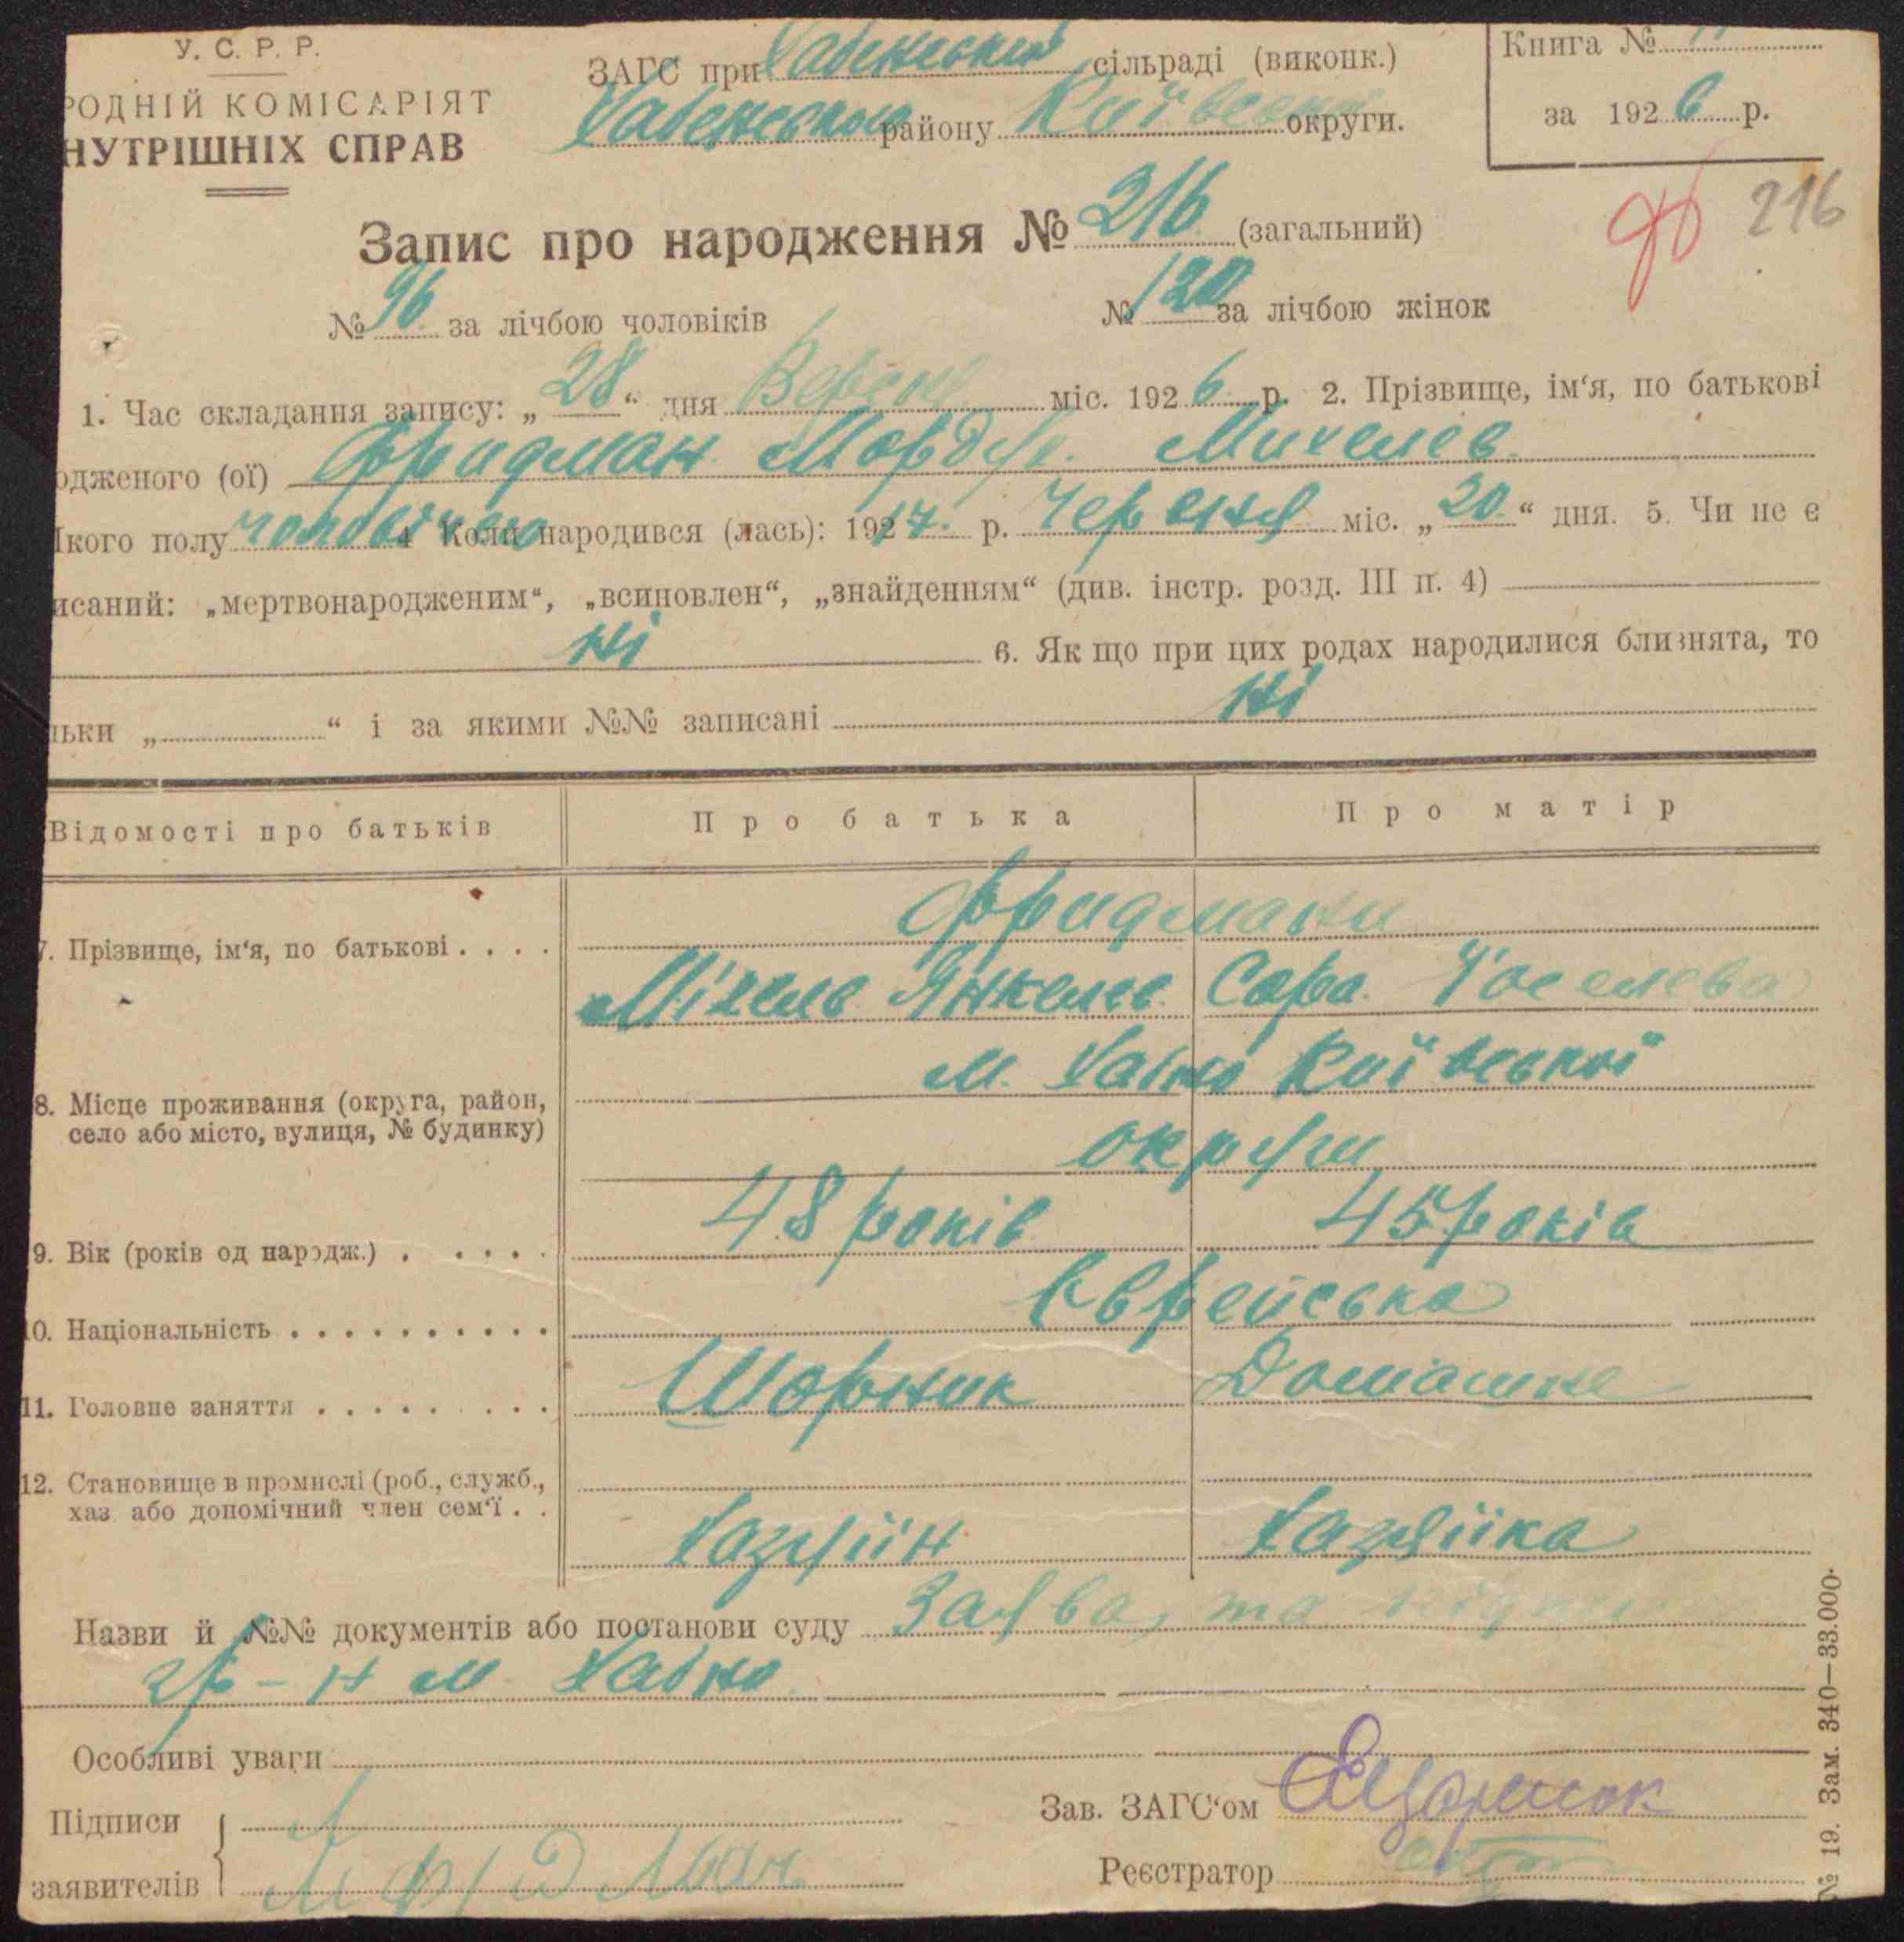 У. С. Р. Р.
РОДНІЙ КОМІСАРІЯТ
НУТРІШНІХ СПРАВ
ЗАГС при Хабенській сільраді (виконк.)
Хабенського району Київської округи.
Книга №
за 1926 р.
216
Запис про народження № 216 (загальний)
№ 96 за лічбою чоловіків № 120 за лічбою жінок
1. Час складання запису: „28“ дня Вересн міс. 1926 р. 2. Прізвище, ім'я, по батькові
одженого (ої) Фридман Мордух Михелев
Якого полу чоловічого 4 Коли народився (лась): 1917 р. Червня міс. „20“ дня. 5. Чи не є
исаний: „мертвонародженим“, „всиновлен“, „знайденням“ (див. інстр. розд. III п. 4)
Ні 6. Як що при цих родах народилися близнята, то
льки „ “ і за якими №№ записані Ні
Відомості про батьків Про батька Про матір
7. Прізвище, ім'я, по батькові . . . . Фридмани
Міхель Янкелев Сора Йоселева
8. Місце проживання (округа, район, село або місто, вулиця, № будинку) м. Хабно Київської
округи
9. Вік (років од народж.) . . . . . 48 років 45 років
10. Національність . . . . . . . . . . Єврейська
11. Головне заняття . . . . . . . . Шорник Домашне
12. Становище в промислі (роб., служб.,
хаз або допомічний член сем'ї . . Хазяїн Хазяїка
Назви й №№ документів або постанови суду Заява та
гр-н м. Хабно
Особливі уваги
Підписи
заявителів
М Фрідман
Зав. ЗАГС'ом
Реєстратор
№ 19. Зам. 340—33.000.